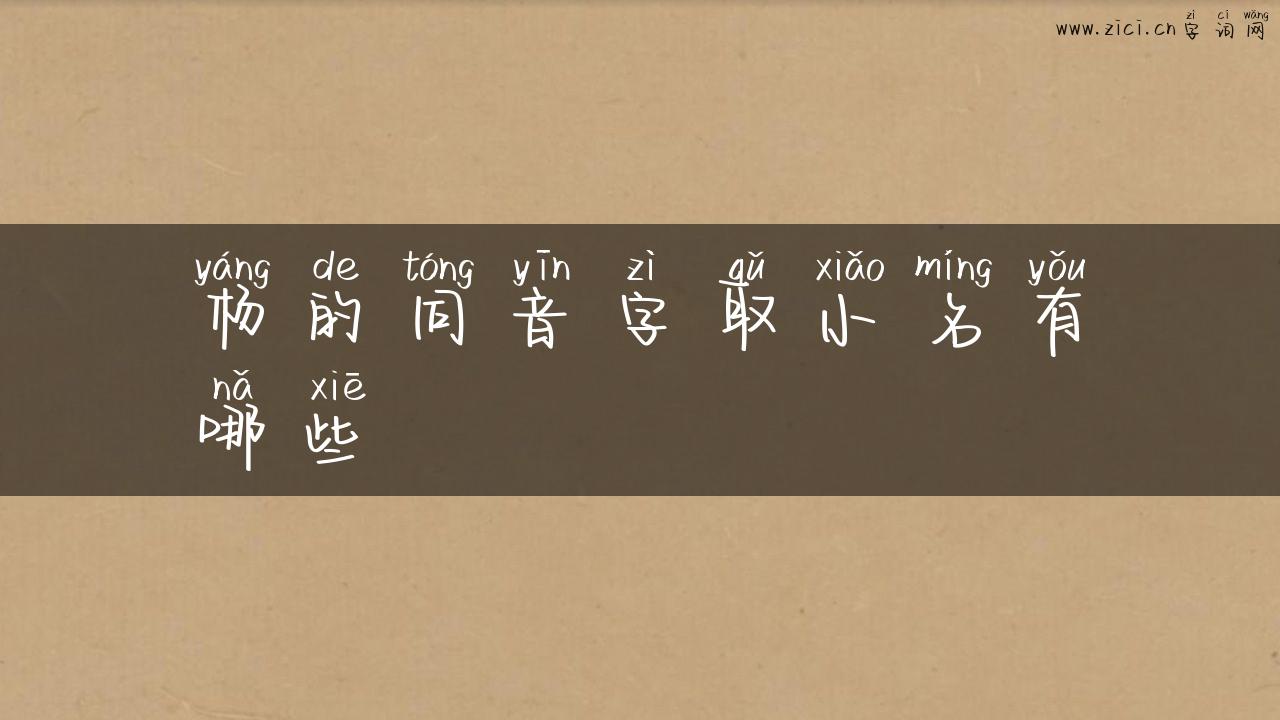 www.zici.cn 字词网
zì cí wǎng
yáng de tóng yīn zì qǔ xiǎo míng yǒu
杨的同音字取小名有
nǎ xiē
哪些